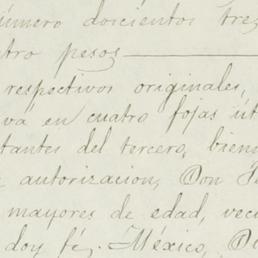 número doscientos trez
tro pesos
respectivos originales,
va en cuatro fojas út
tantes del tercero, bien
autorizacion, Don
mayores de edad, vec
doy fé. México, D